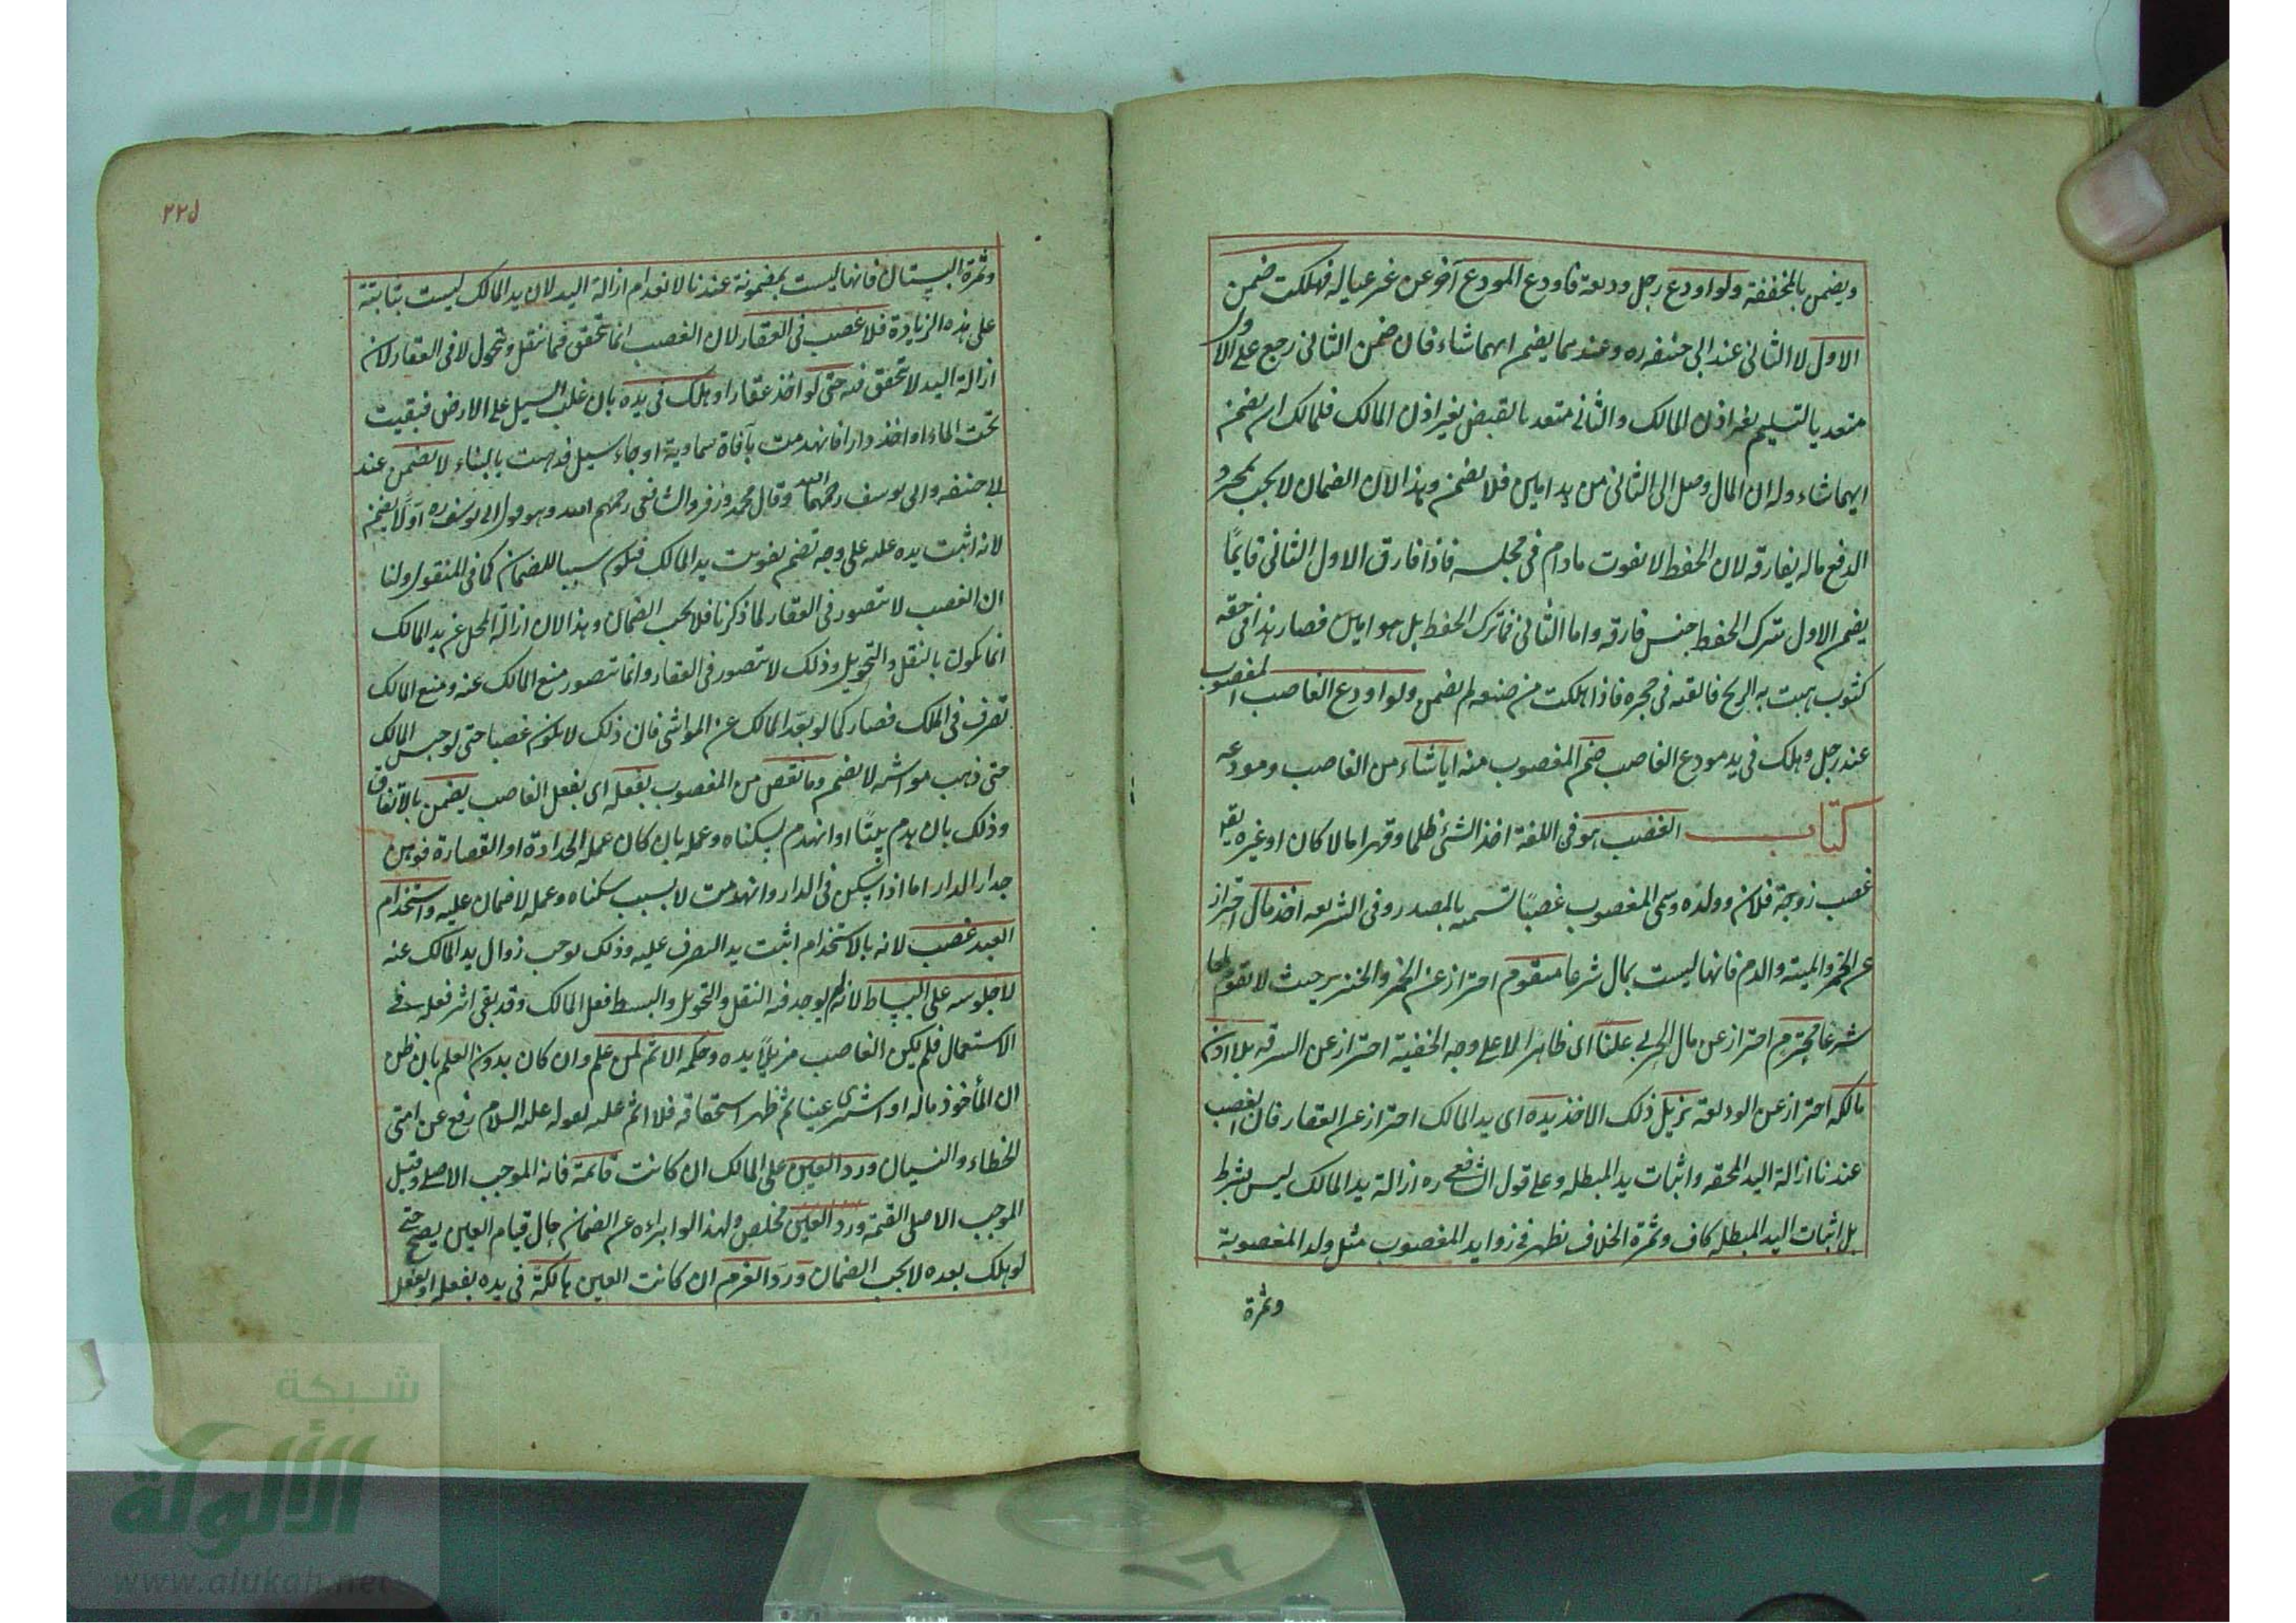 ويضمن بالمخففة ولو اودع رجل وديعة فاودع المودع آخر عن غير عياله فهلكت ضمن
الاول لا الثانى عند ابى حنيفه ره وعندهما يضمن ايهما شاء فان ضمن الثانى رجع على الاول
متعد بالتسليم بغير اذن المالك والثانى متعد بالقبض بغير اذن المالك فللمالك ان يضمن
ايهما شاء وله ان المال وصل الى الثانى من يد امين فلا يضمن وهذا لان الضمان لا يجب بمجرد
الدفع ما لم يفارقه لان الحفظ لا يفوت مادام فى مجلسه فاذا فارق الاول الثانى قايمًا
يضمن الاول بترك الحفظ حين فارقه واما الثانى فما ترك الحفظ بل هو امين فصار هذا فى حقه
كثوب هبت به الريح فالقته فى حجره فاذا هلكت من صنعه لم يضمن ولو اودع الغاصب المغصوب
عند رجل وهلك فى يد مودع الغاصب ضمن المغصوب منه ايا شاء من الغاصب ومودعه
كتاب الغصب هو فى اللغة اخذ الشئ ظلما وقهرا مالا كان او غيره يقال
غصب زوجة فلان وولده وسمى المغصوب غصبًا تسمية بالمصدر وفى الشريعه اخذ مال احتراز
عن الخمر والميته والدم فانها ليست بمال شرعا متقوم احتراز عن الخمر والخنزير حيث لا تقوم لهما
شرعا محترم احتراز عن مال الحربى علنًا اى ظاهرا لا على وجه الخفية احتراز عن السرقه بلا اذن
مالكه احتراز عن الوديعة يزيل ذلك الاخذ يده اى يد المالك احتراز عن العقار فان الغصب
عندنا ازالة اليد المحقه واثبات يد المبطله وعلى قول الشافعى ره ازالة يد المالك ليس بشرط
بل اثبات اليد المبطله كاف وثمرة الخلاف تظهر فى زوايد المغصوب مثل ولد المغصوبة
وثمرة
٢٢٥
وثمرة البستان فانها ليست بمضمونة عندنا لانعدام ازالة اليد لان يد المالك ليست بثابتة
على هذه الزيادة فلا غصب فى العقار لان الغصب انما تحقق فيما ينقل ويحول لا فى العقار لان
ازالة اليد لا تحقق فيه حتى لو اخذ عقارا وهلك فى يده بان غلب السيل على الارض فبقيت
تحت الماء او اخذ دارا فانهدمت بآفاة سماوية او جاء سيل فذهبت بالبناء لا يضمن عند
ابى حنيفه وابى يوسف رحمهما الله وقال محمد وزفر والشافعى رحمهم الله وهو قول ابى يوسف ره اولًا يضمن
لانه اثبت يده عليه على وجه تضمن تفويت يد المالك فيكون سببا للضمان كما فى المنقول ولنا
ان الغصب لا يتصور فى العقار لما ذكرنا فلا يجب الضمان وهذا لان ازالة المحل عن يد المالك
انما تكون بالنقل والتحويل وذلك لا يتصور فى العقار وانما يتصور منع المالك عنه ومنع المالك
تصرف فى الملك فصار كما لو بعّد المالك عن المواشى فان ذلك لا يكون غصبا حتى لو حبس المالك
حتى ذهب مواشيه لا يضمن وما نقص من المغصوب بفعله اى بفعل الغاصب يضمن بالاتفاق
وذلك بان هدم بيتًا او انهدم بسكناه وعمله بان كان عمله الحدادة او القصارة فوهن
جدار الدار اما اذا سكن فى الدار وانهدمت لا بسبب سكناه وعمله لا ضمان عليه واستخدام
العبد غصب لانه بالاستخدام اثبت يد التصرف عليه وذلك يوجب زوال يد المالك عنه
لا جلوسه على البساط لانه لم يوجد فيه النقل والتحويل والبسط فعل المالك وقد بقى اثر فعله فى
الاستعمال فلم يكن الغاصب مزيلًا يده وحكمه الاثم لمن علم وان كان بدون العلم بان ظن
ان المأخوذ ماله او اشترى عينا ثم ظهر استحقاقه فلا اثم عليه لقوله عليه السلام رفع عن امتى
الخطاء والنسيان ورد العين على المالك ان كانت قائمة فانه الموجب الاصلى وقيل
الموجب الاصلى القيمة ورد العين مخلص ولهذا لو ابراءه عن الضمان حال قيام العين يصح حتى
لو هلك بعده لا يجب الضمان ورد الغرم ان كانت العين هالكة فى يده بفعله او بفعل
شبكة
الألوكة
www.alukah.net